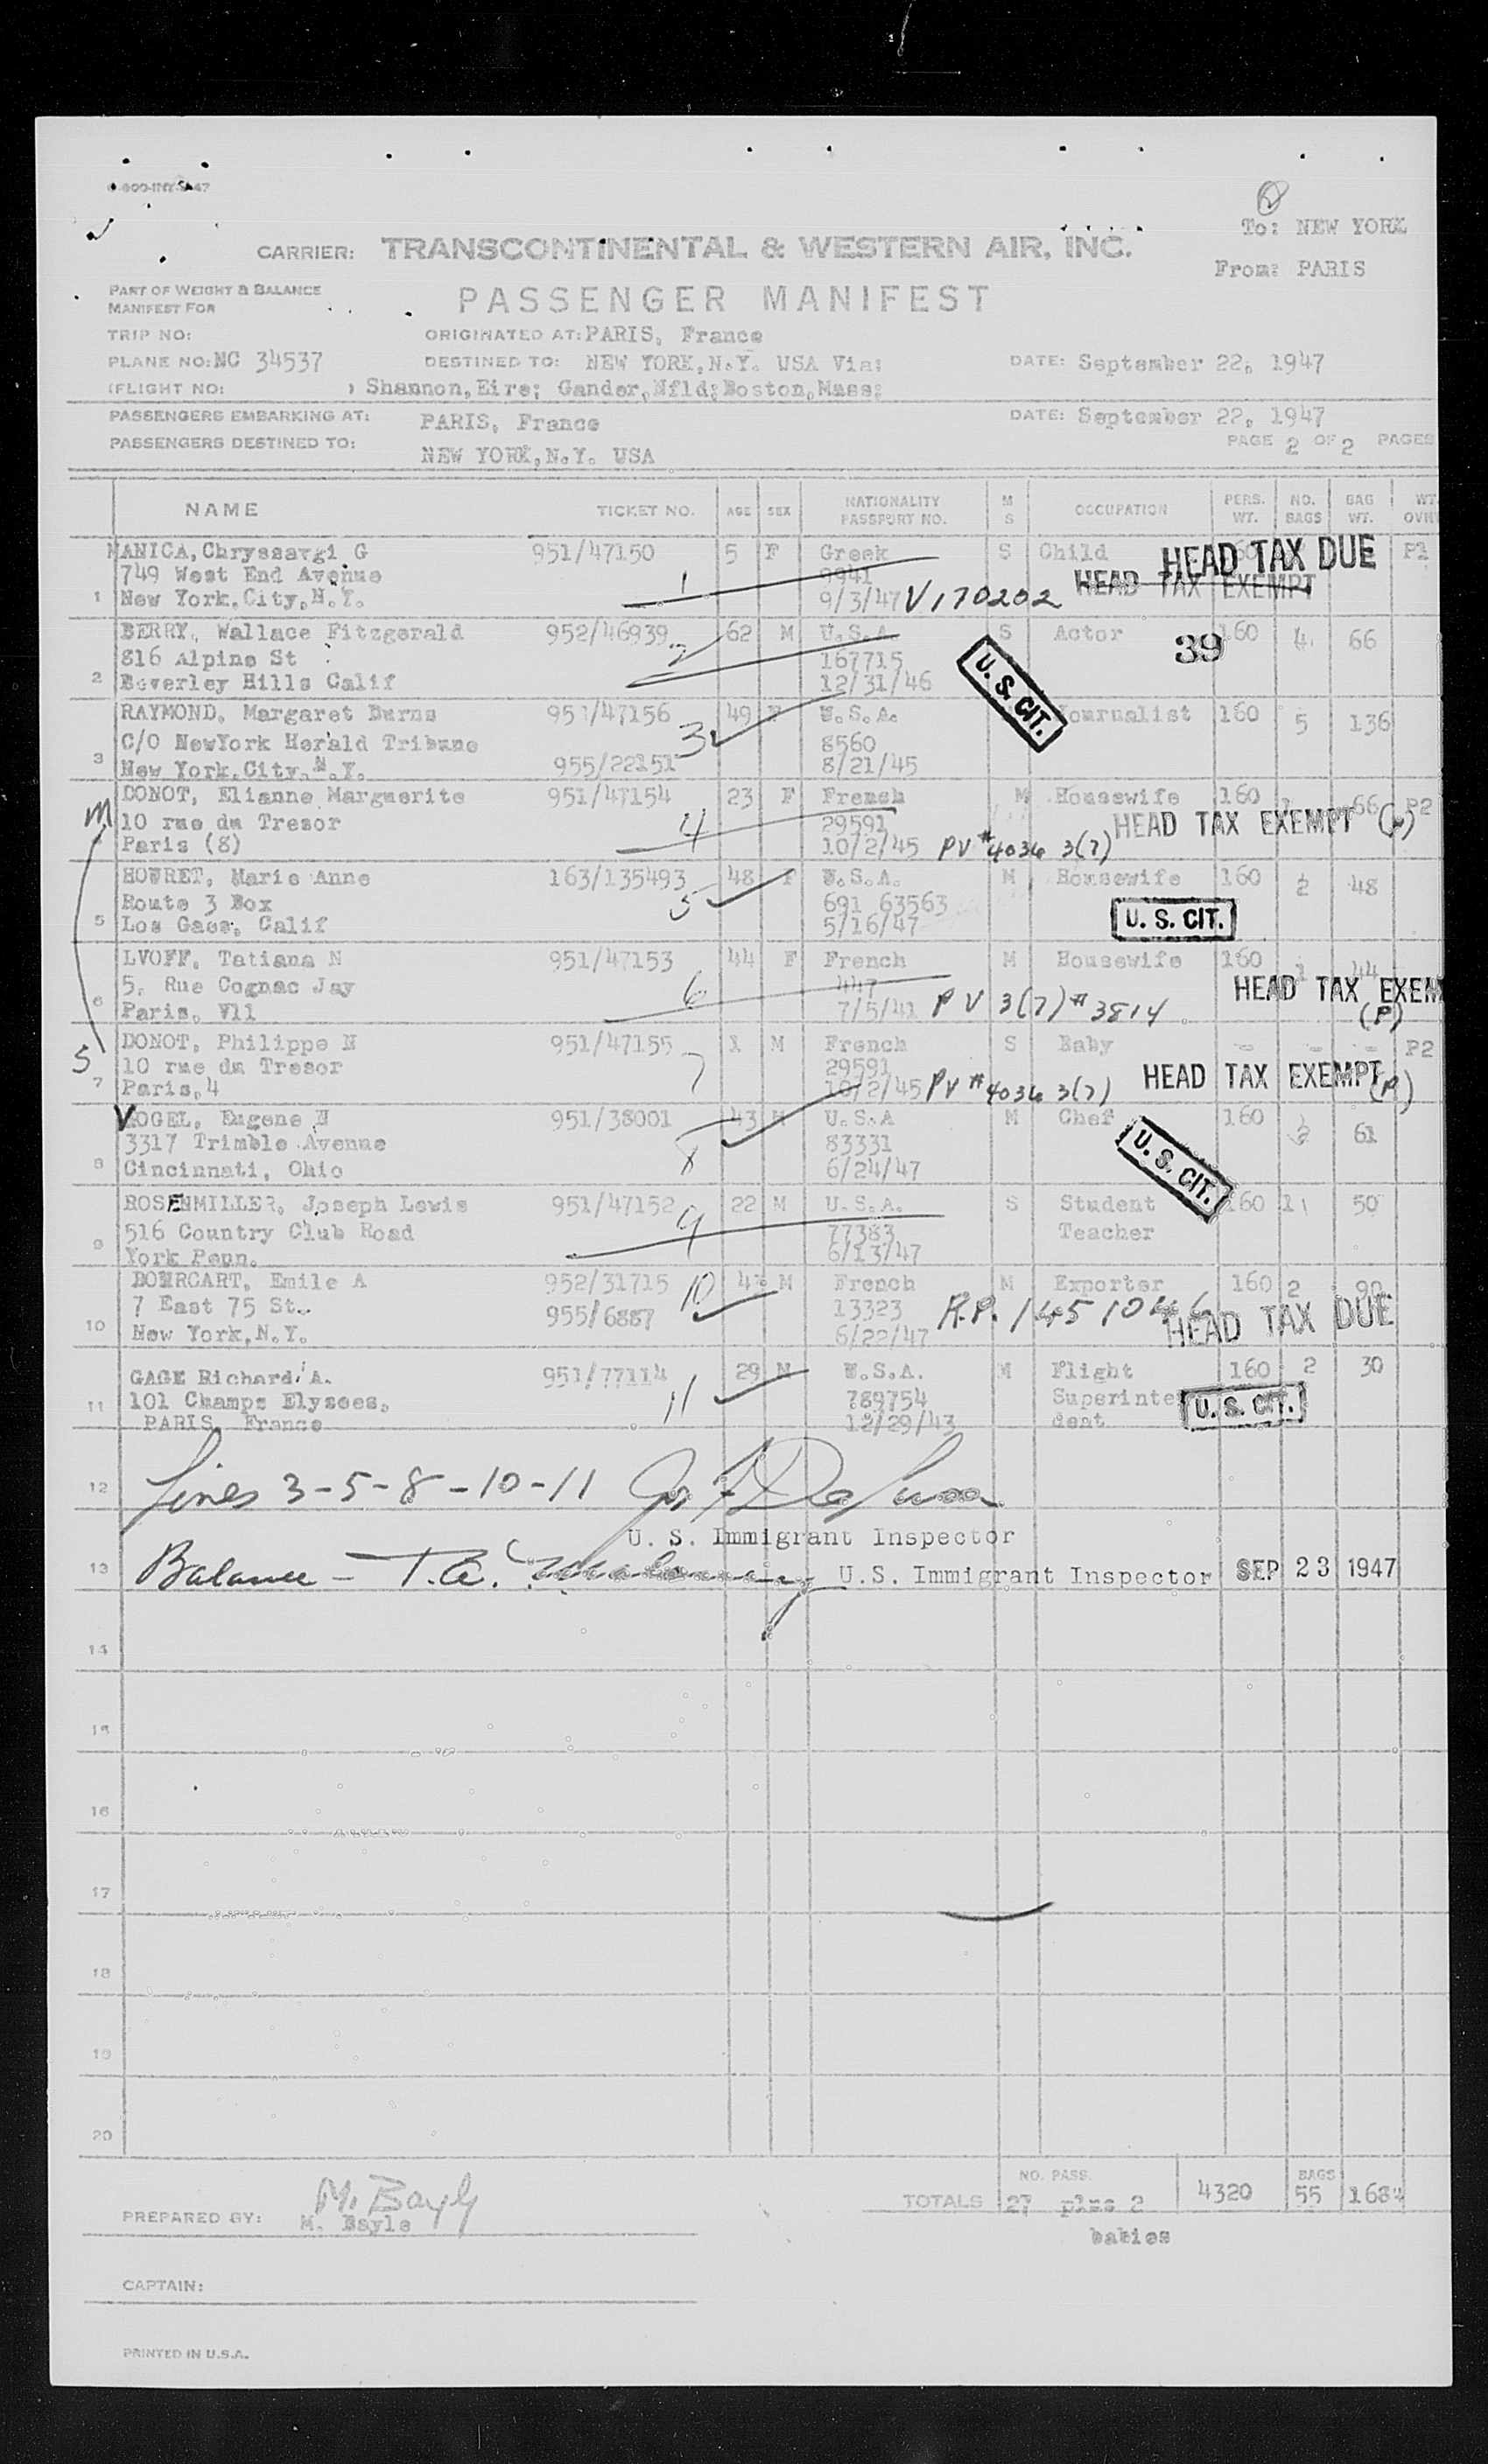 To: NEW YORK
From: PARIS
CARRIER: TRANSCONTINENTAL & WESTERN AIR, INC.
PART OF WEIGHT & BALANCE
MANIFEST FOR
PASSENGER MANIFEST
TRIP NO: ORIGINATED AT: PARIS, France
PLANE NO: NC 34537 DESTINED TO: NEW YORK, N.Y. USA Via: DATE: September 22, 1947
(FLIGHT NO: ) Shannon, Eire; Gander, Nfld; Boston, Mass;
PASSENGERS EMBARKING AT: PARIS, France DATE: September 22, 1947
PAGE 2 OF 2 PAGES
PASSENGERS DESTINED TO: NEW YORK, N.Y. USA
NAME TICKET NO. AGE SEX NATIONALITY PASSPORT NO. M S OCCUPATION PERS. WT. NO. BAGS BAG WT.
MANICA, Chryssavgi G 951/47150 5 F Greek S Child HEAD TAX DUE P1
749 West End Avenue 1 9941 HEAD TAX EXEMPT
1 New York, City, N.Y. 9/3/47 V170202
BERRY, Wallace Fitzgerald 952/46939 2 62 M U.S.A. S Actor 39 160 4 66
816 Alpine St 167715 U. S. CIT.
2 Beverley Hills Calif 12/31/46
RAYMOND, Margaret Burns 951/47156 3 49 F U.S.A. Journalist 160 5 136
C/O NewYork Herald Tribune 8560
3 New York, City, N.Y. 955/22151 8/21/45
M DONOT, Elianne Marguerite 951/47154 23 F French M Housewife 160 66 P2
10 rue du Tresor 4 29591 HEAD TAX EXEMPT
Paris (8) 10/2/45 PV #4036 3(7)
HOURET, Marie Anne 163/135493 5 48 F U.S.A. M Housewife 160 2 48
Route 3 Box 691 63563 U. S. CIT.
5 Los Gaos, Calif 5/16/47
LVOFF, Tatiana N 951/47153 44 F French M Housewife 160 1 44
5, Rue Cognac Jay 6 447 HEAD TAX EXEM
6 Paris, V11 7/5/41 PV 3(7) #3814 (P)
DONOT, Philippe N 951/47155 7 1 M French S Baby - - - P2
5 10 rue du Tresor 29591 HEAD TAX EXEMPT (P)
7 Paris, 4 10/2/45 PV #4036 3(7)
VOGEL, Eugene N 951/38001 8 43 M U.S.A M Chef 160 61
3317 Trimble Avenue 83331 U. S. CIT.
8 Cincinnati, Ohio 6/24/47
ROSENMILLER, Joseph Lewis 951/47152 9 22 M U.S.A. S Student 160 1 50
516 Country Club Road 77383 Teacher
9 York Penn. 6/13/47
DOURCART, Emile A 952/31715 10 M French M Exporter 160 2 90
7 East 75 St. 955/6887 13323 R.P. 1451046
10 New York, N.Y. 6/22/47 HEAD TAX DUE
GAGE Richard A. 951/77114 11 29 M U.S.A. M Flight 160 2 30
11 101 Champs Elysees, 789754 Superinte U. S. CIT.
PARIS, France 12/29/43 dent
12 Lines 3-5-8-10-11
U. S. Immigrant Inspector
13 Balance - U.S. Immigrant Inspector SEP 23 1947
14
15
16
17
18
19
20
NO. PASS. BAGS
TOTALS 27 plus 2 4320 55
babies
PREPARED BY: M. Bayle
M. Bayle
CAPTAIN:
PRINTED IN U.S.A.